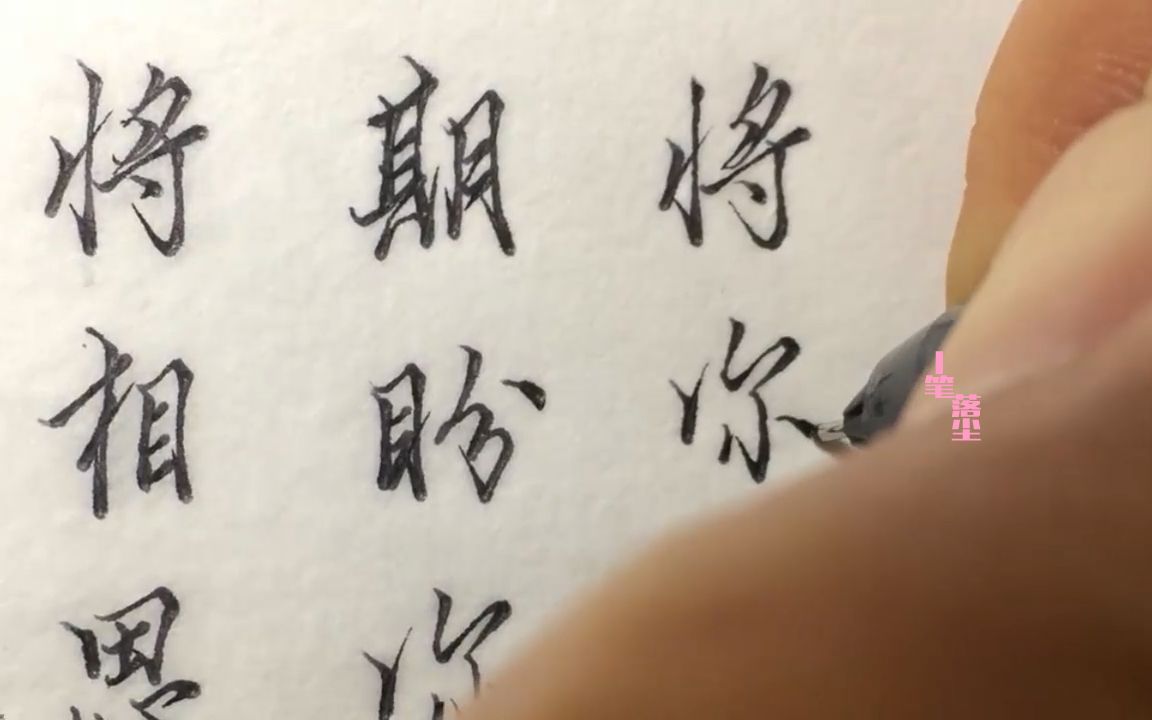 将相思
期盼你
将你
一笔落尘